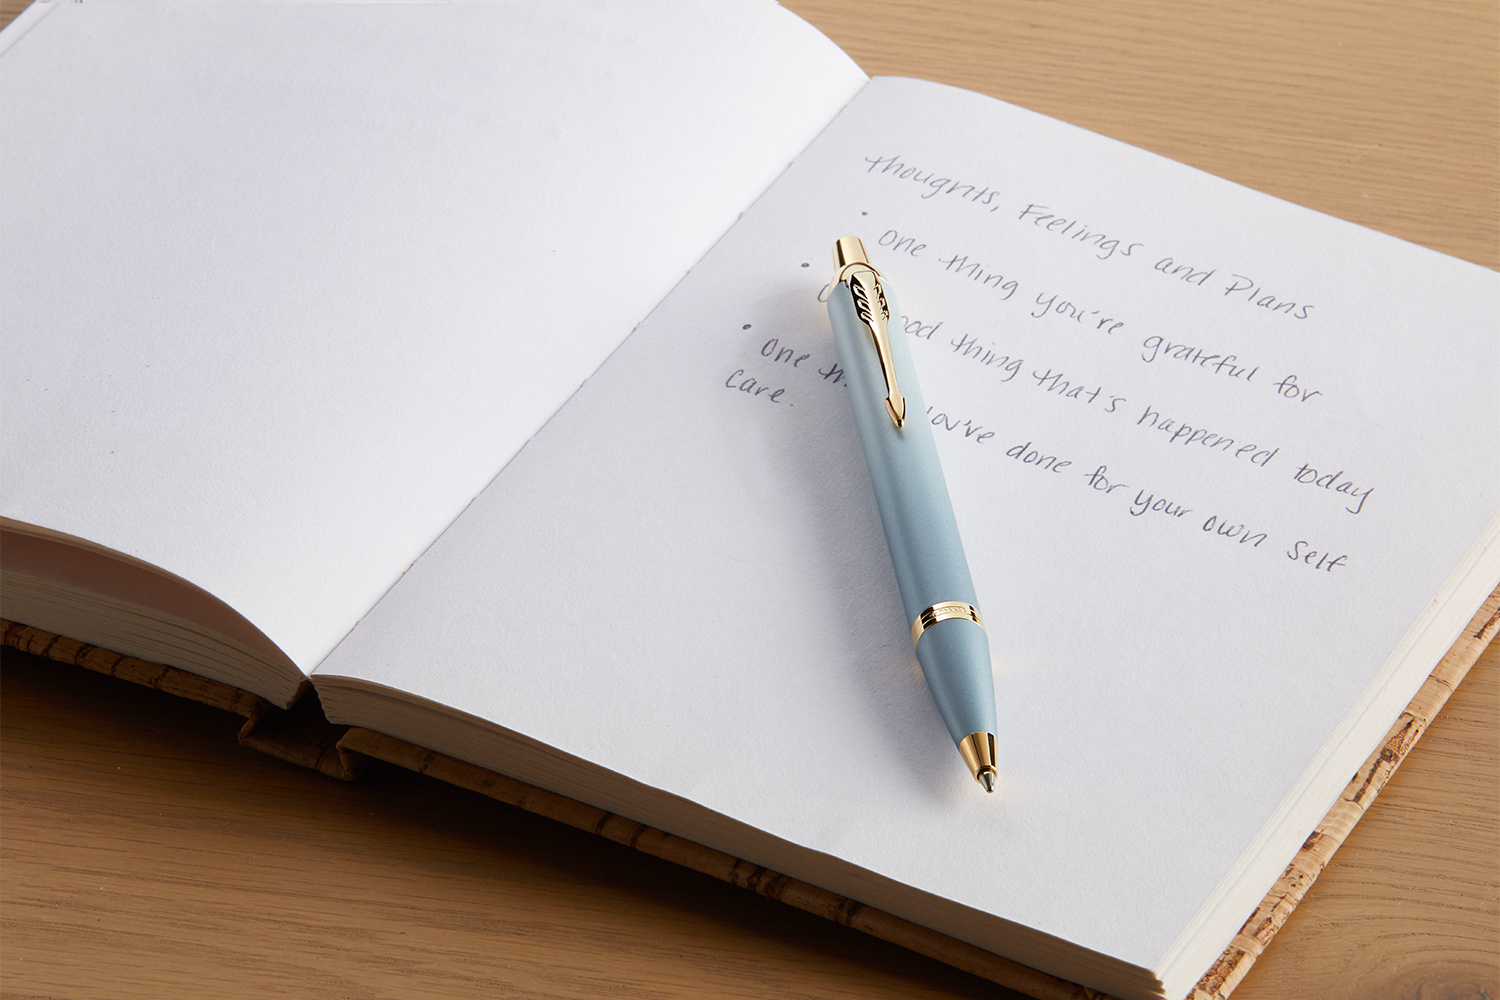 thoughts, Feelings and Plans
• One thing you're grateful for
• thing that's happened today
• One you've done for your own self
care.